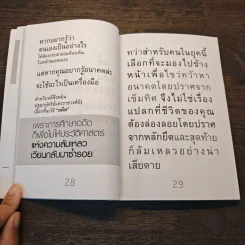 หากอยากรู้ว่า
ตนเองเป็นอย่างไร
ในหมู่ของตนเอง
แต่หากคุณอยากรู้อนาคตล่ะ
จะใช้อะไรเป็นเครื่องมือ
เลือกที่จะใช้ “อดีต”
เพราะการศึกษาอดีต
ก็เพื่อไม่ให้ประวัติศาสตร์
แห่งความล้มเหลว
เวียนกลับมาซ้ำรอย
28
ทว่าสำหรับคนในยุคนี้
เลือกที่จะมองไปข้าง
หน้าเพื่อไขว่คว้าหา
อนาคตโดยปราศจาก
เข็มทิศ จึงไม่ใช่เรื่อง
แปลกที่ชีวิตของคุณ
ต้องล่องลอยโดยปราศ
จากหลักยึดและสุดท้าย
ก็ล้มเหลวอย่างน่า
เสียดาย
29